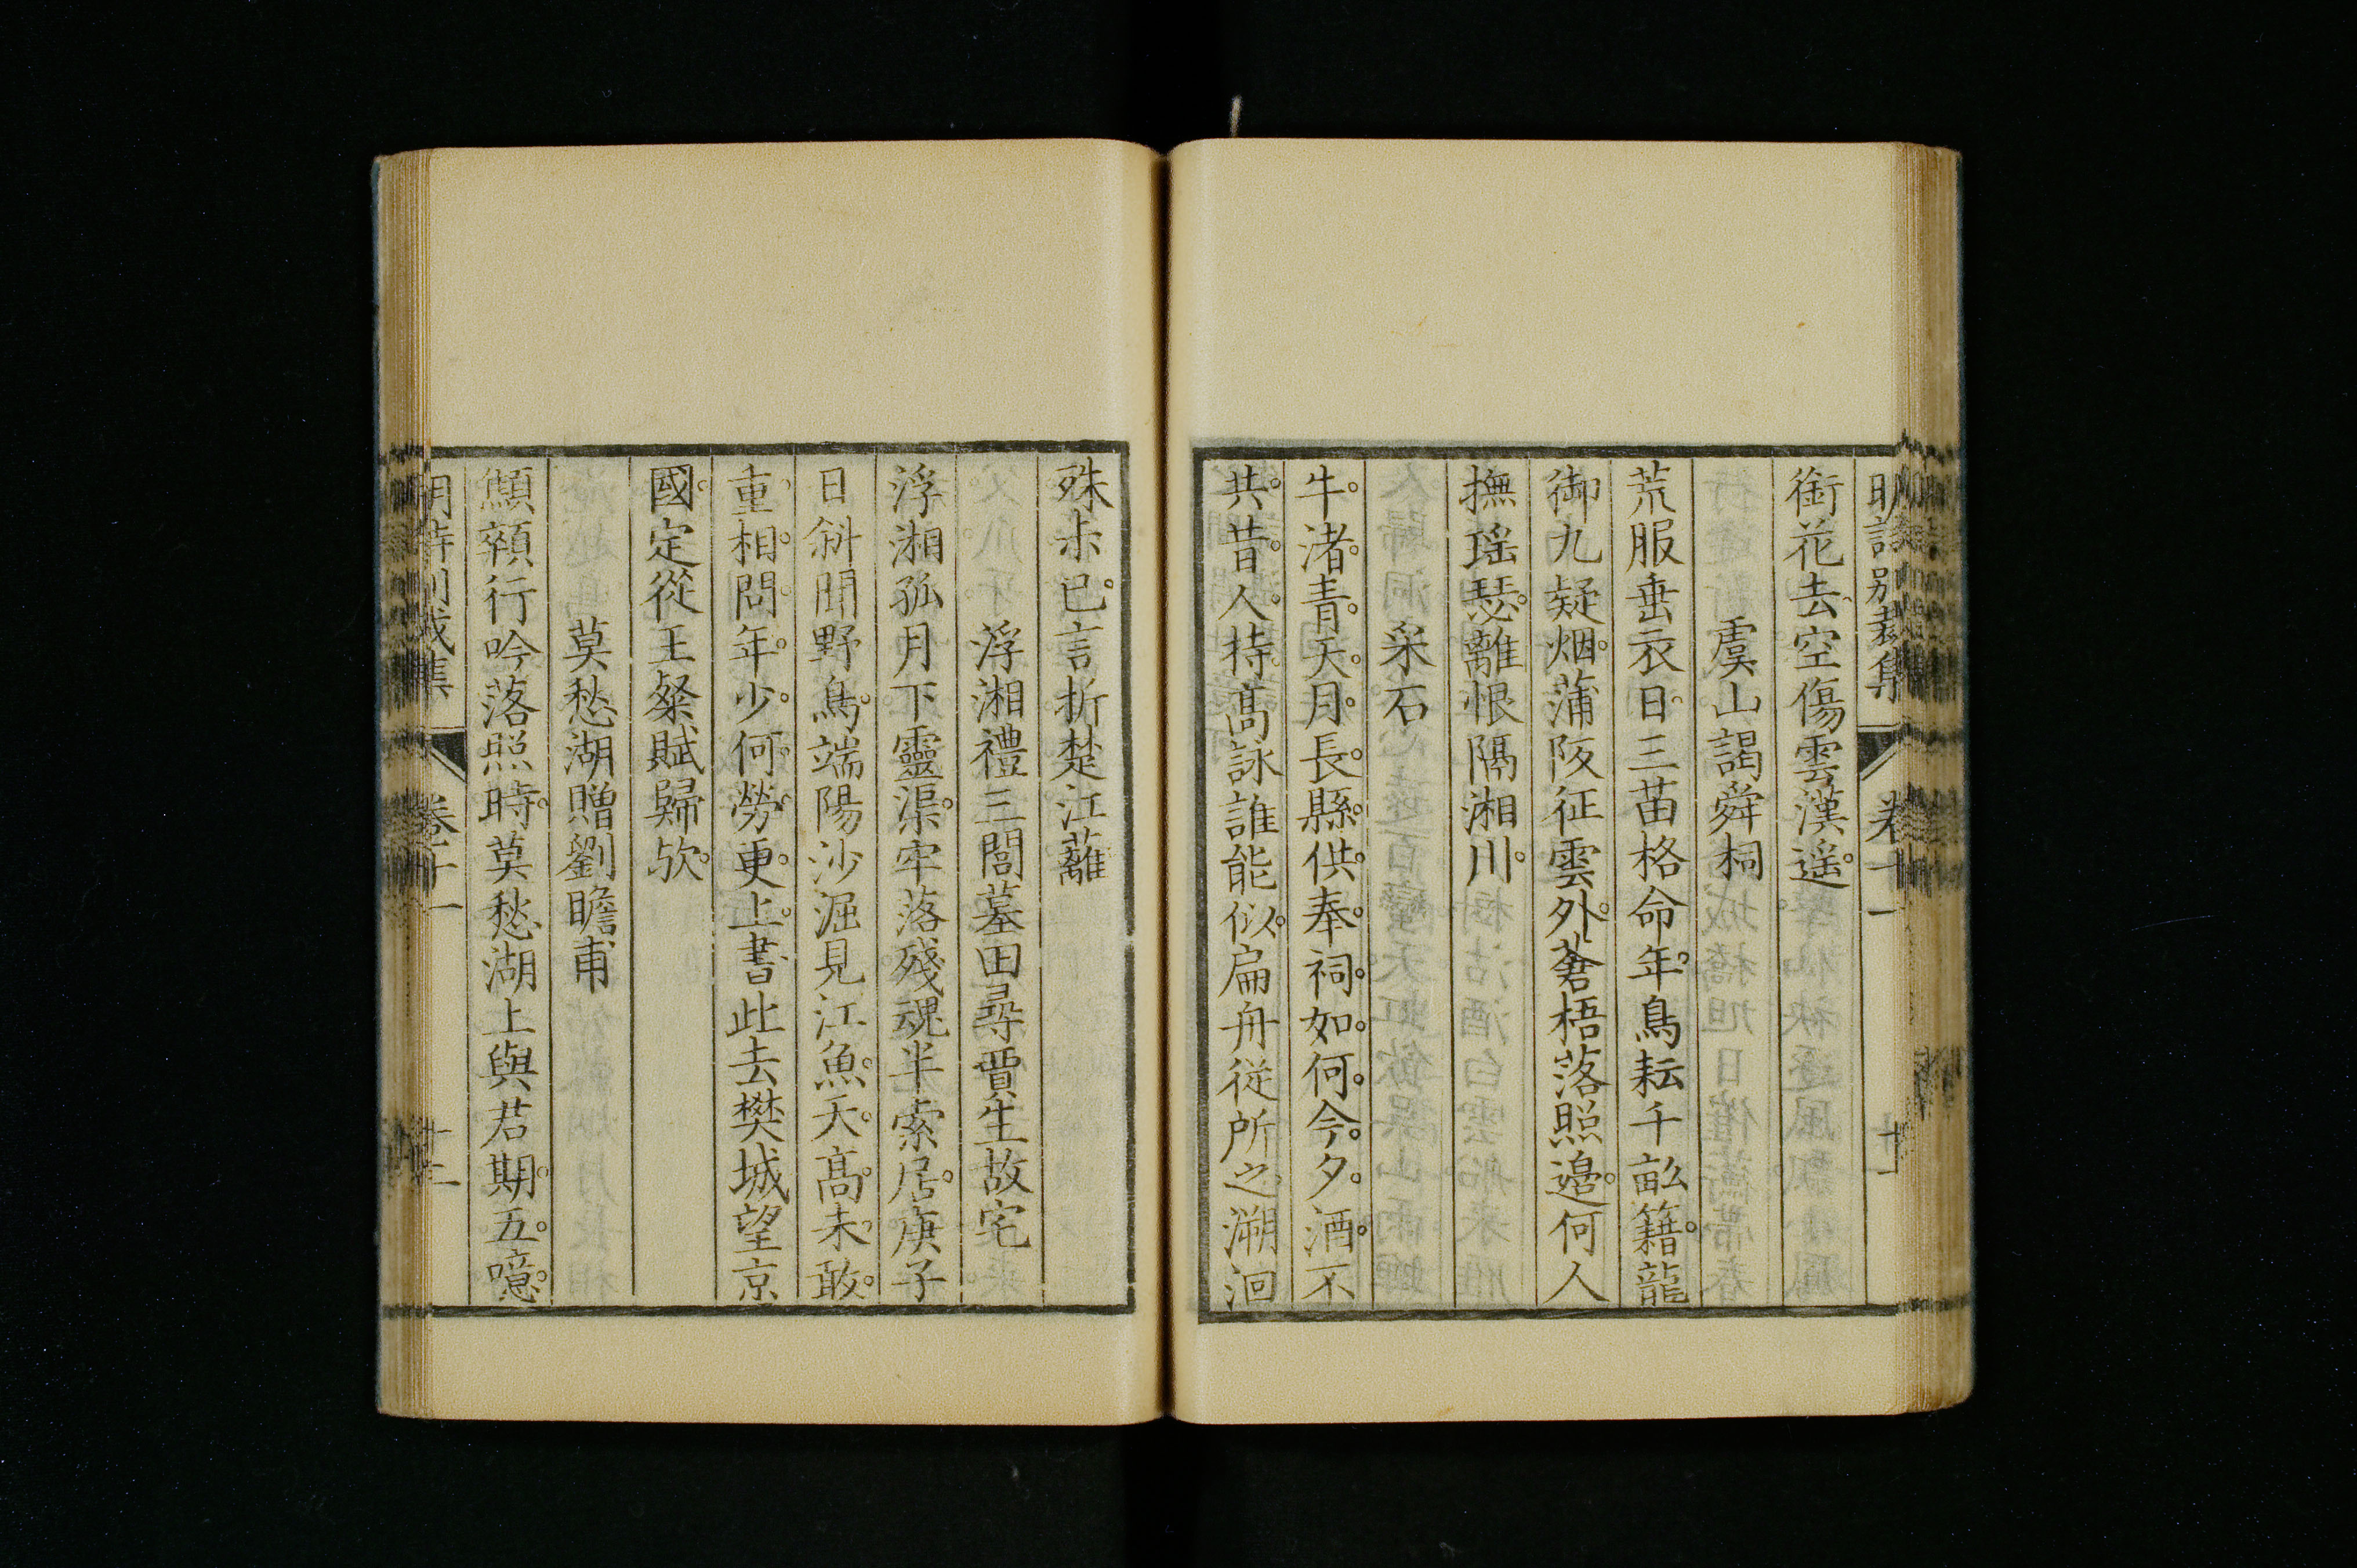 明詩別裁集 卷十一 十一
銜花去空傷雲漢遥
虞山謁舜祠
荒服垂衣日三苗格命年鳥耘千畝籍龍
御九疑烟蒲阪征雲外蒼梧落照邉何人
撫瑶瑟離恨隔湘川
采石
牛渚青天月長縣供奉祠如何今夕酒不
共昔人持髙詠誰能似扁舟從所之溯洄
殊未已言折楚江蘺
浮湘禮三閭墓田尋賈生故宅
浮湘孤月下靈渠牢落殘魂半索居庚子
日斜聞野鳥端陽沙涸見江魚天髙未敢
重相問年少何勞更上書此去樊城望京
國定從王粲賦歸歟
莫愁湖贈劉瞻甫
顦顇行吟落照時莫愁湖上與君期五噫
明詩別裁集 卷十一 十二